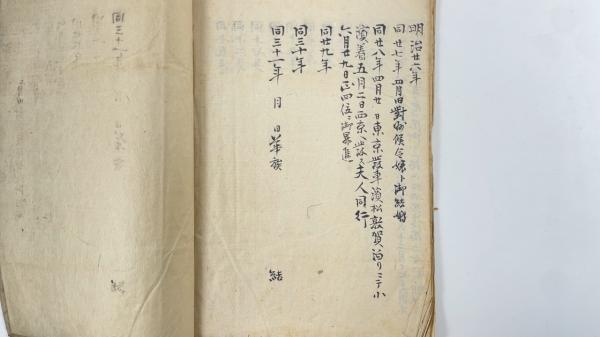 明治廿六年
同廿七年四月 對州候令嬢ト御結婚
同廿八年四月廿 日東京發車濱松敦賀泊リニテ小
濱着五月二日西京ヘ發ス夫人同行
六月廿九日正四位ニ御昇進
同廿九年
同三十年
同三十一年 月 日華族 結